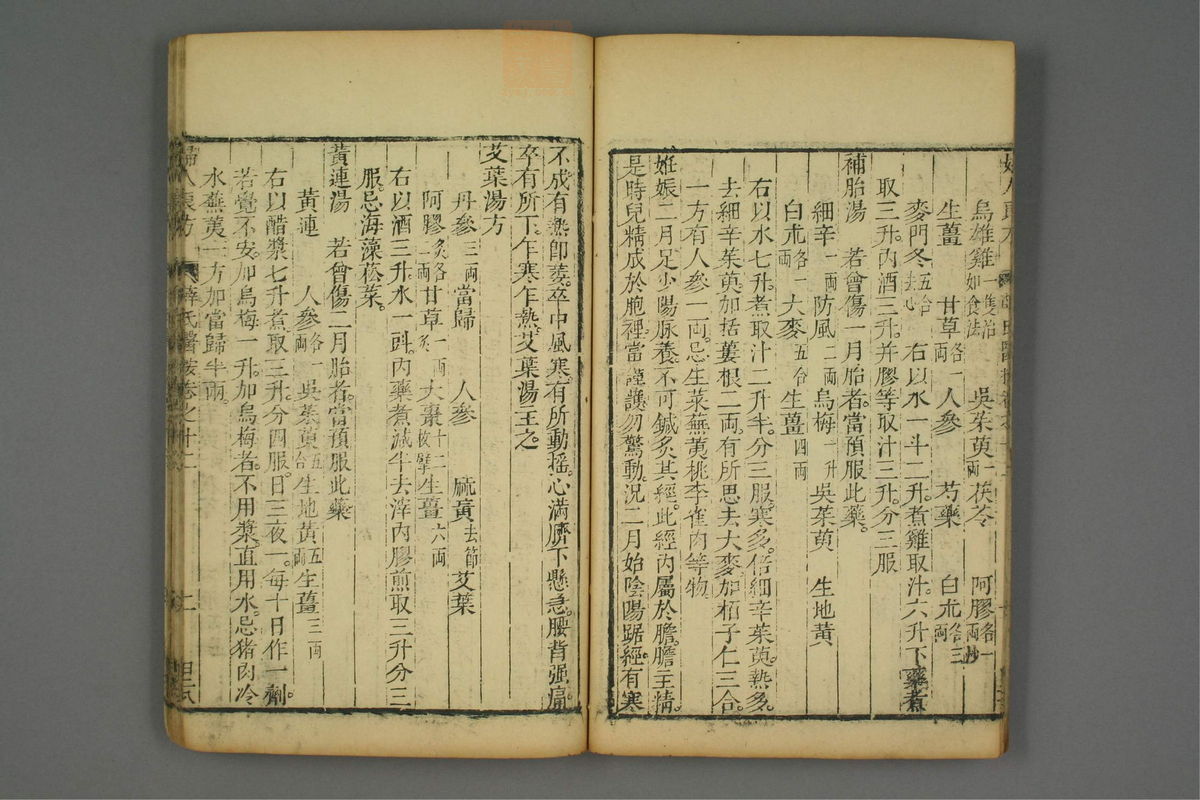 烏雄雞一隻治如食法 吳茱萸一兩 茯苓 阿膠各一兩炒
生薑 甘草各一兩 人參 芍藥 白朮各三兩
麥門冬五合去心 右以水一斗二升。煮雞取汁。六升下藥煮
取三升。內酒三升。并膠等取汁三升。分三服
補胎湯 若曾傷一月胎者。當預服此藥。
細辛一兩 防風二兩 烏梅一升 吳茱萸 生地黃
白朮各一兩 大麥五合 生薑四兩
右以水七升。煮取汁二升半。分三服。寒多。倍細辛茱萸。熱多。
去細辛茱萸。加栝蔞根二兩。有所思去大麥加栢子仁三合。
一方有人參一兩。忌生菜蕪荑桃李雀肉等物
妊娠二月足少陽脉養。不可鍼灸其經。此經內屬於膽。膽主精。
是時兒精成於胞裡。當謹護勿驚動。況二月始陰陽踞經。有寒
不成。有熱卽萎。卒中風寒。有所動搖。心滿臍下懸急。腰背强痛。
卒有所下。乍寒乍熱。艾葉湯主之。
艾葉湯方
丹參三兩 當歸 人參 麻黃去節 艾葉
阿膠炙各二兩 甘草一兩炙 大棗十二枚擘 生薑六兩
右以酒三升。水一斗。內藥煮減半去滓內膠煎取三升分三
服。忌海藻菘菜。
黃連湯 若曾傷二月胎者。當預服此藥。
黃連 人參各一兩 吳茱萸五合 生地黃五兩 生薑三兩
右以醋漿七升。煮取三升。分四服。日三夜一。每十日作一劑。
若覺不安。加烏梅一升。加烏梅者。不用漿。直用水。忌猪肉冷
水蕪荑一方加當歸半兩。
婦人良方 薛氏醫按卷之十二